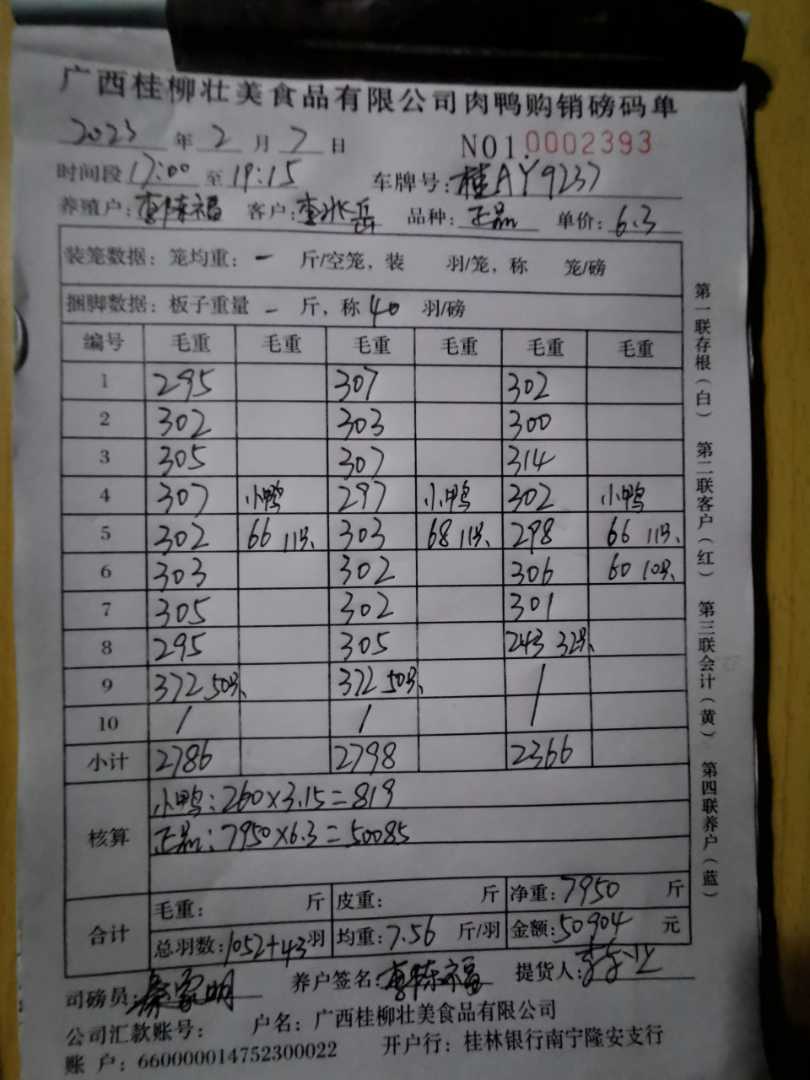 广西桂柳壮美食品有限公司肉鸭购销磅码单
2023 年 2 月 7 日 NO1.0002393
时间段 17:00 至 19:15 车牌号: 桂AY9237
养殖户: 李陈福 客户: 岳 品种: 正品 单价: 6.3
装笼数据: 笼均重: - 斤/空笼, 装 羽/笼, 称 笼/磅
捆脚数据: 板子重量 - 斤, 称 40 羽/磅
编号 毛重 毛重 毛重 毛重 毛重 毛重
1 295 307 302
2 302 303 300
3 305 307 314
4 307 小鸭 297 小鸭 302 小鸭
5 302 66 11只 303 68 11只 298 66 11只
6 303 302 306 60 10只
7 305 302 301
8 295 305 243 32只
9 372 50只 372 50只 /
10 / / /
小计 2786 2798 2366
核算
小鸭: 260×3.15=819
正品: 7950×6.3=50085
合计
毛重: 斤 皮重: 斤 净重: 7950 斤
总羽数: 1052+43 羽 均重: 7.56 斤/羽 金额: 50904 元
司磅员: 家明 养户签名: 李陈福 提货人:
公司汇款账号: 户名: 广西桂柳壮美食品有限公司
账 户: 660000014752300022 开户行: 桂林银行南宁隆安支行
第一联存根(白) 第二联客户(红) 第三联会计(黄) 第四联养户(蓝)